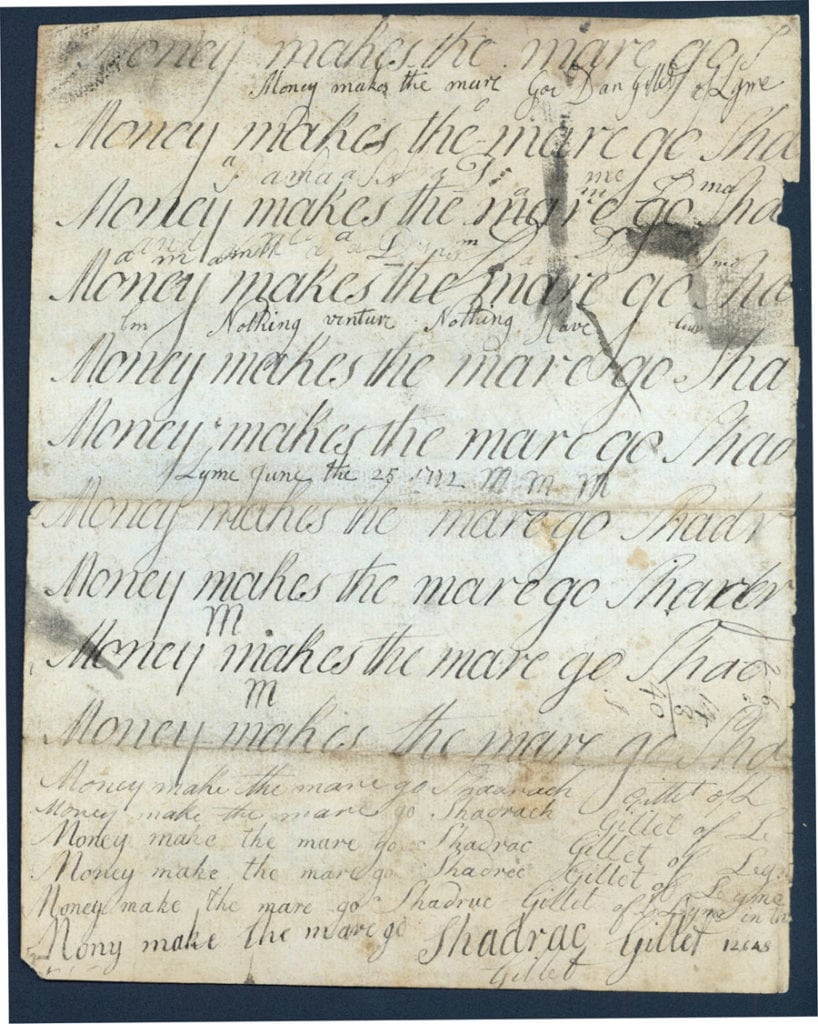 Money makes the mare go S
Money makes the mare Goe Dan Gillet of Lyme
Money makes the mare go Sha
me
Money makes the mare go Sha
Money makes the mare go Sha
Nothing venture Nothing Have
Money makes the mare go Sha
Money makes the mare go Shad
Lyme June the 25 1792 M M M
Money makes the mare go Shadr
Money makes the mare go Shadr
M
Money makes the mare go Shad
M
Money makes the mare go Sha
Money make the mare go Shadrach Gillet of L
Money make the mare go Shadrach Gillet of Le
Money make the mare go Shadrac Gillet of Leym
Money make the mare go Shadrec Gillet of Leyme
Money make the mare go Shadrac Gillet of Lyme in
Mony make the mare go Shadrac Gillet
Gillet